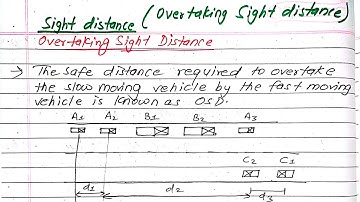 Sight distance (Overtaking Sight distance)
Overtaking Sight Distance
→ The safe distance required to overtake
the slow moving vehicle by the fast moving
vehicle is known as OSD.
A1 A2 B1 B2 A3
C2 C1
d1 d2 d3